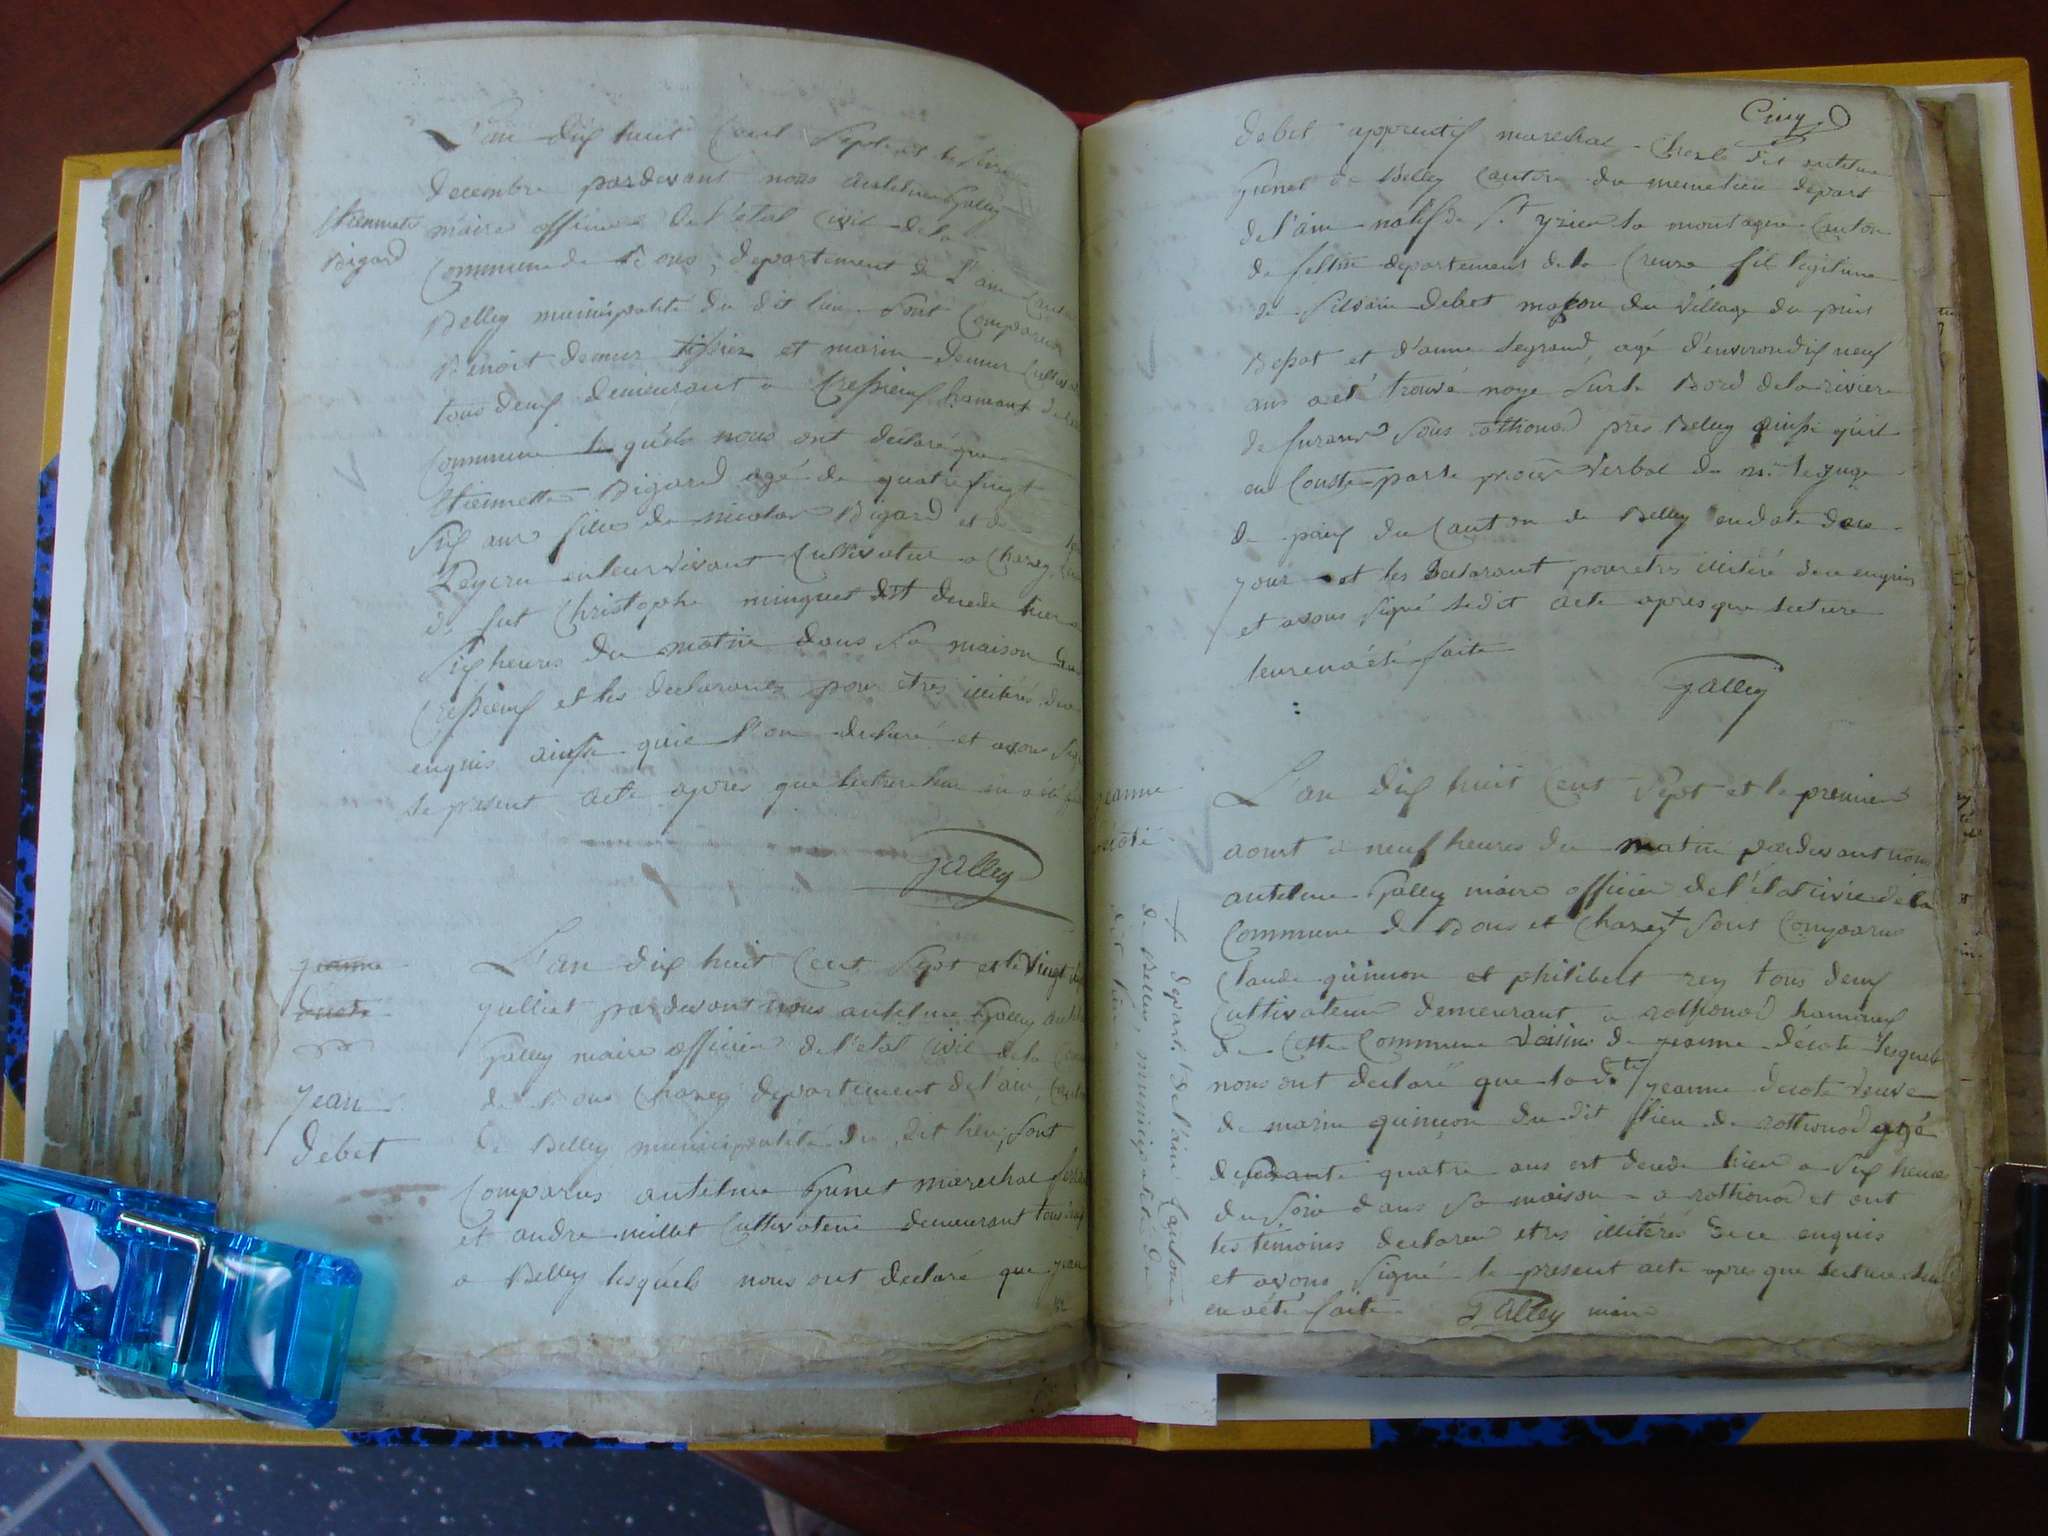 L'an dix huit Cent Sept et le
decembre pardevant nous antelme Galley
Etiennette
Bigard
maire officier de l'etat civil de la
Commune de Bons, departement de l'ain Canton
Belley municipalité du dit lieu Sont Comparus
Benoit demur tissier et marin demur Cultiv
tous deux demeurant a Cressieux hameau de la
Commune les quels nous ont déclaré que
Etiennette Bigard agé de quatre vingt
Six ans fille de nicolas Bigard et de
en leur vivant Cultivateur a Chazey
de fut Christophe munguet dit decede hier a
Six heures du matin dans Sa maison
Cressieux et les declarants pour etres illiterés de ce
enquis ainsi qu'ie l'on declaré et avons Sig
le present acte apres que lecture leur en a été
Galley
jeanne
decote
L'an dix huit Cent Sept et le vingt
juilliet pardevant nous antelme Galley
Galley maire officier de l'etat civil de la Com
jean
debet
de Bons Chazey departement de l'ain, Canton
de Belley municipalité du dit lieu, Sont
Comparus antelme Genet marechal
et andre millet Cultivateur demeurant tous
a Belley lesquels nous ont declaré que jean
Cinq
debet apprentif marechal Chez le dit antelme
Genet de Belley Canton du meme lieu depart
de l'ain natif de St yrieu la montagne Canton
de felltin departement de la Creuse fils legitime
de Silvain debet maçon du village du puis
Bessat et d'anne legrand, agé d'environ dix neuf
ans a eté trouvé noye sur le Bord de la riviere
de furans Sous rothonod près Belley ainsi qu'il
en Conste par le procès verbal de mr le juge
de paix du Canton de Belley en date de ce
jour et les declarant pour etres illiteré de ce enquis
et avons Signé ledit acte apres que lecture
leur en a été faite
Galley
jeanne
decote
L'an dix huit Cent Sept et le premier
aoust a neuf heures du matin pardevant nous
antelme Galley maire officier de l'état civil de la
Commune de Bons et Chazey + Sont Comparus
Claude quinson et philibert rey tous deux
Cultivateur demeurant a rothonod hameaux
de Cette Commune voisins de jeanne décote lesquels
nous ont déclaré que la dte jeanne decote veuve
de marin quinson du dit lieu de rothonod agé
de soixante quatre ans est decede hier a Six heures
du Soir dans Sa maison a rothonod et ont
les témoins declaren etres illitérés de ce enquis
et avons Signé le present acte apres que lecture leur
en a été faite Galley maire
+ depart. de l'ain Canton
de Belley, municipalité du
dit lieu